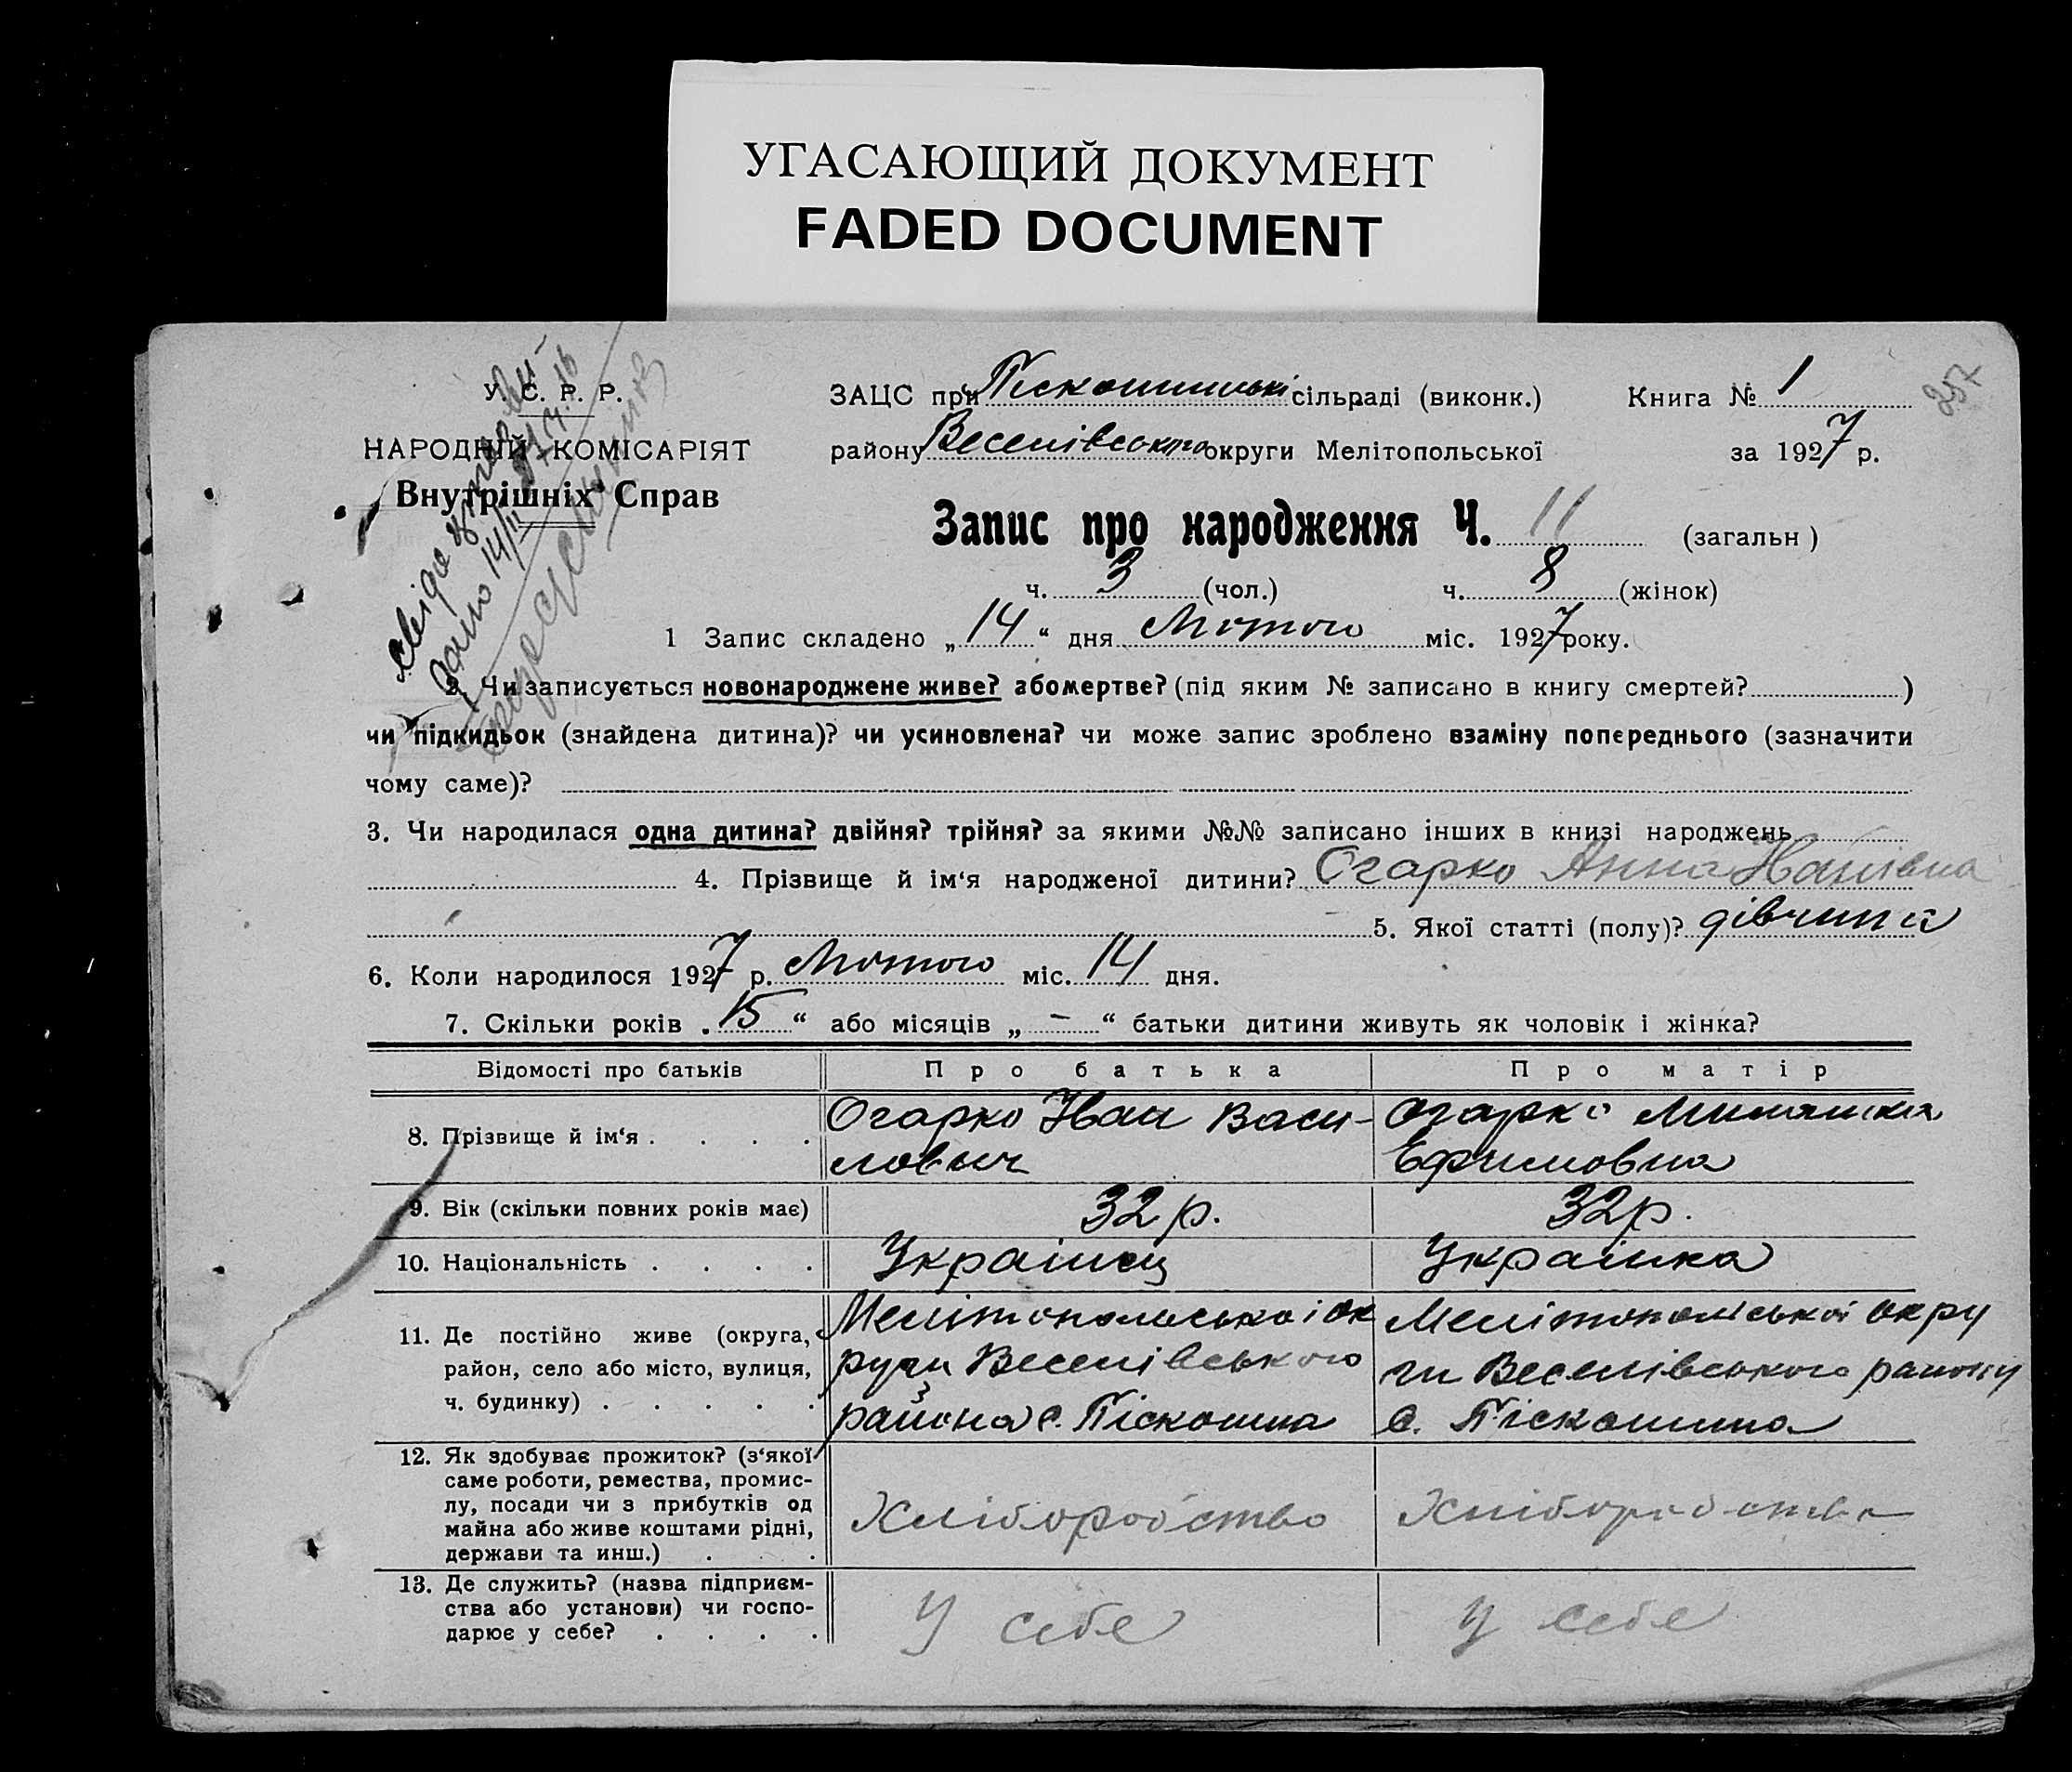 УГАСАЮЩИЙ ДОКУМЕНТ
FADED DOCUMENT
У. С. Р. Р.
НАРОДНІЙ КОМІСАРІЯТ
Внутрішніх Справ
дано 14/II
ЗАЦС при Піскошинські сільраді (виконк.) Книга № 1
257
району Веселівського округи Мелітопольської за 1927 р.
Запис про народження Ч. 11 (загальн )
ч. 3 (чол.) ч. 8 (жінок)
1 Запис складено „ 14 “ дня Лютого міс. 1927 року.
2. Чи записується новонароджене живе? або мертве? (під яким № записано в книгу смертей? )
чи підкидьок (знайдена дитина)? чи усиновлена? чи може запис зроблено взаміну попереднього (зазначити
чому саме)?
3. Чи народилася одна дитина? двійня? трійня? за якими №№ записано інших в книзі народжень
4. Прізвище й ім‘я народженої дитини? Огарко Анна Иванівна
5. Якої статті (полу)? дівчина
6. Коли народилося 1927 р. Лютого міс. 14 дня.
7. Скільки років „ 15 “ або місяців „ — “ батьки дитини живуть як чоловік і жінка?
Відомості про батьків Про батька Про матір
8. Прізвище й ім‘я . . . . Огарко Иван Васи-
ловыч
Огарко
Ефимовна
9. Вік (скільки повних років має) 32 р. 32 р.
10. Національність . . . . Украінец Украінка
11. Де постійно живе (округа,
район, село або місто, вулиця,
ч. будинку) . . . . .
Мелітопольськоі ок
руги Веселівського
района с. Піскошина
Мелітопольськоі окру
ги Веселівського району
с. Піскошина
12. Як здобуває прожиток? (з‘якої
саме роботи, ремества, промис-
лу, посади чи з прибутків од
майна або живе коштами рідні,
держави та инш.) . . .
Хліборобство Хліборобство
13. Де служить? (назва підприєм-
ства або установи) чи госпо-
дарює у себе? . . . .
У себе У себе